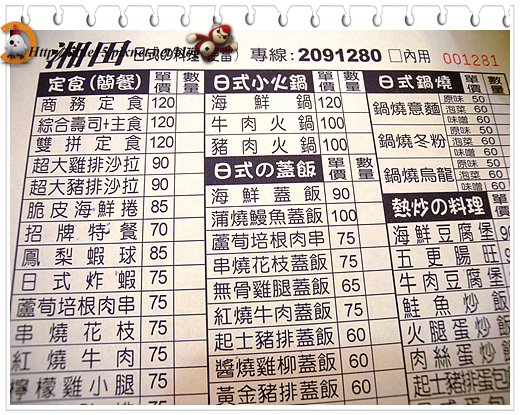 湘日 日式の料理
專線:2091280 □內用 001281
定食(簡餐) 單價 數量
商務定食 120
綜合壽司+主食 120
雙拼定食 120
超大雞排沙拉 90
超大豬排沙拉 90
脆皮海鮮捲 85
招牌特餐 70
鳳梨蝦球 85
日式炸蝦 75
蘆筍培根肉串 75
串燒花枝 75
紅燒牛肉 75
檸檬雞小腿 75
日式小火鍋 單價 數量
海鮮鍋 100
牛肉火鍋 100
豬肉火鍋 100
日式の蓋飯 單價 數量
海鮮蓋飯 90
蒲燒鰻魚蓋飯 100
蘆筍培根肉串 75
串燒花枝蓋飯 75
無骨雞腿蓋飯 65
紅燒牛肉蓋飯 75
起士豬排蓋飯 60
醬燒雞柳蓋飯 60
黃金豬排蓋飯 60
日式鍋燒 單價
鍋燒意麵 原味 50
泡菜 60
味噌 60
鍋燒冬粉 原味 50
泡菜 60
味噌 60
鍋燒烏龍 原味 50
泡菜 60
味噌 60
熱炒の料理 單價
海鮮豆腐堡 90
五更腸旺
牛肉豆腐堡
鮭魚炒飯
火腿蛋炒飯
肉絲蛋炒飯
起士豬排蛋包飯